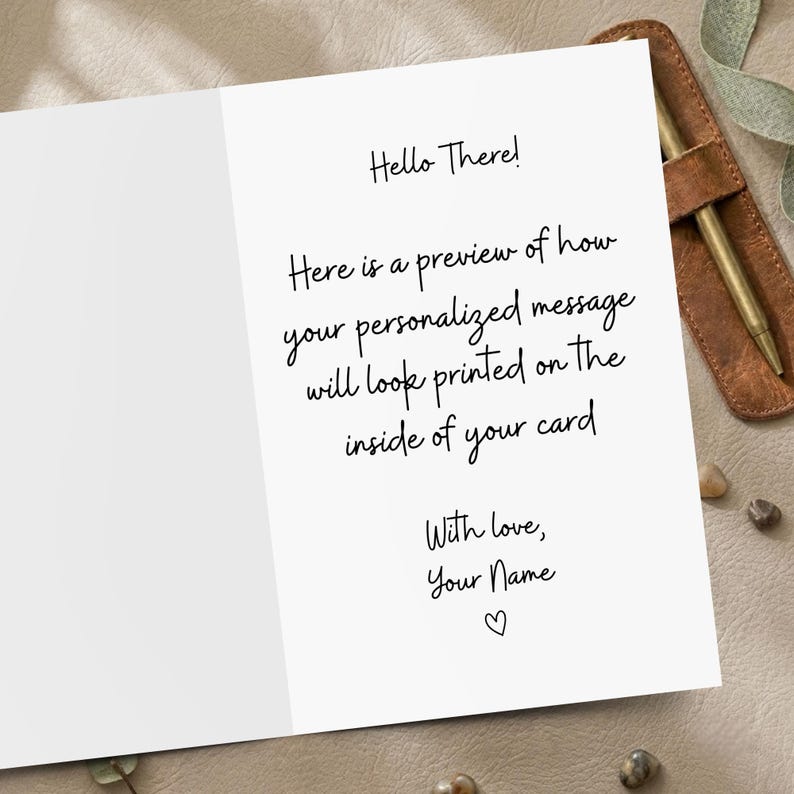 Hello There!
Here is a preview of how
your personalized message
will look printed on the
inside of your card
With love,
Your Name
♡